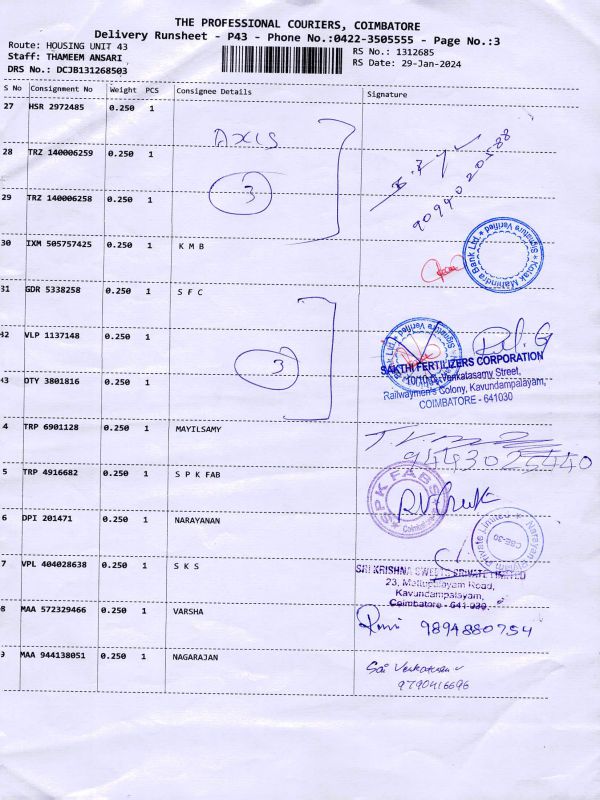 THE PROFESSIONAL COURIERS, COIMBATORE
Delivery Runsheet - P43 - Phone No.:0422-3505555 - Page No.:3
Route: HOUSING UNIT 43
RS No.: 1312685
Staff: THAMEEM ANSARI
RS Date: 29-Jan-2024
DRS No.: DCJB131268503
S No Consignment No Weight PCS Consignee Details Signature
27 HSR 2972485 0.250 1
AXIS
28 TRZ 140006259 0.250 1
3
29 TRZ 140006258 0.250 1
30 IXM 505757425 0.250 1 K M B
Kotak Mahindra Bank Ltd. * Signature Verified *
31 GDR 5338258 0.250 1 S F C
32 VLP 1137148 0.250 1
3
SAKTHI FERTILIZERS CORPORATION
Venkatasamy Street,
33 OTY 3801816 0.250 1
Railwaymen's Colony, Kavundampalayam,
COIMBATORE - 641030
4 TRP 6901128 0.250 1 MAYILSAMY
9443025440
5 TRP 4916682 0.250 1 S P K FAB
SPK FABS
Coimbatore
6 DPI 201471 0.250 1 NARAYANAN
Private Limited * Narayan
CBE-30
7 VPL 404028638 0.250 1 S K S
SRI KRISHNA SWEETS PRIVATE LIMITED
23, Mettupalayam Road,
Kavundampalayam,
Coimbatore - 641 030.
8 MAA 572329466 0.250 1 VARSHA
9894880754
9 MAA 944138051 0.250 1 NAGARAJAN
Sai
9790416696